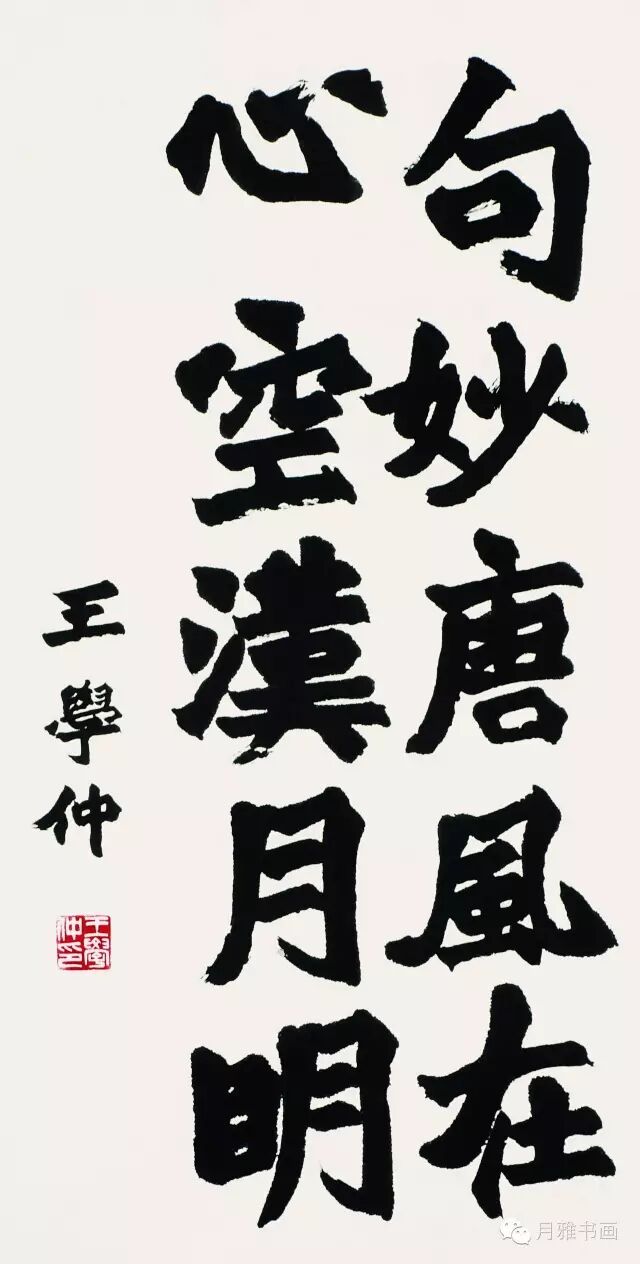 句妙唐風在
心空漢月明
王學仲
王學仲印
月雅书画